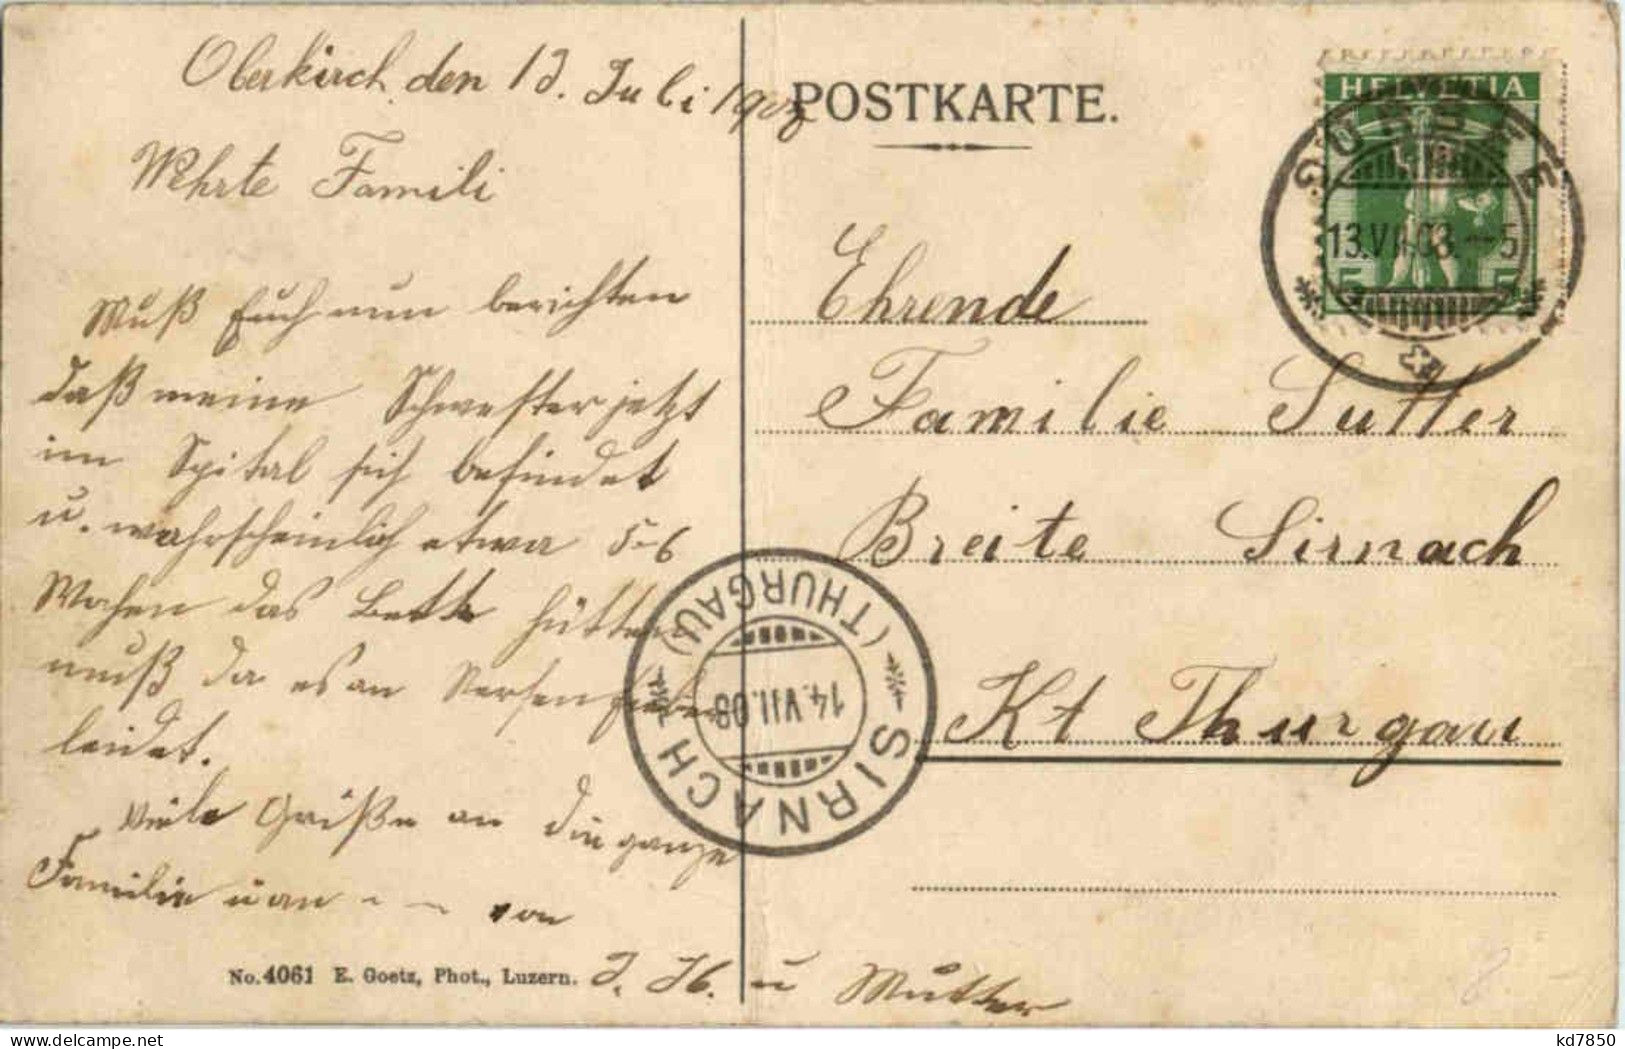 Oberkirch, den 13. Juli 1908
Wehrte Famili
Muß Euch nun berichten
daß meine Schwester jetzt
im Spital sich befindet
u. wahrscheinlich etwa 5-6
Wochen das Bett hütten
muß da es an
leidet.
Viele Grüße an die ganze
Familie von
J. H. u Mutter
No. 4061 E. Goetz, Phot., Luzern.
POSTKARTE.
HELVETIA
5 5
13.VII.08.-5
Ehrende
Familie Sutter
Breite Sirnach
Kt Thurgau
SIRNACH
(THURGAU)
14.VII.08
8
kd7850